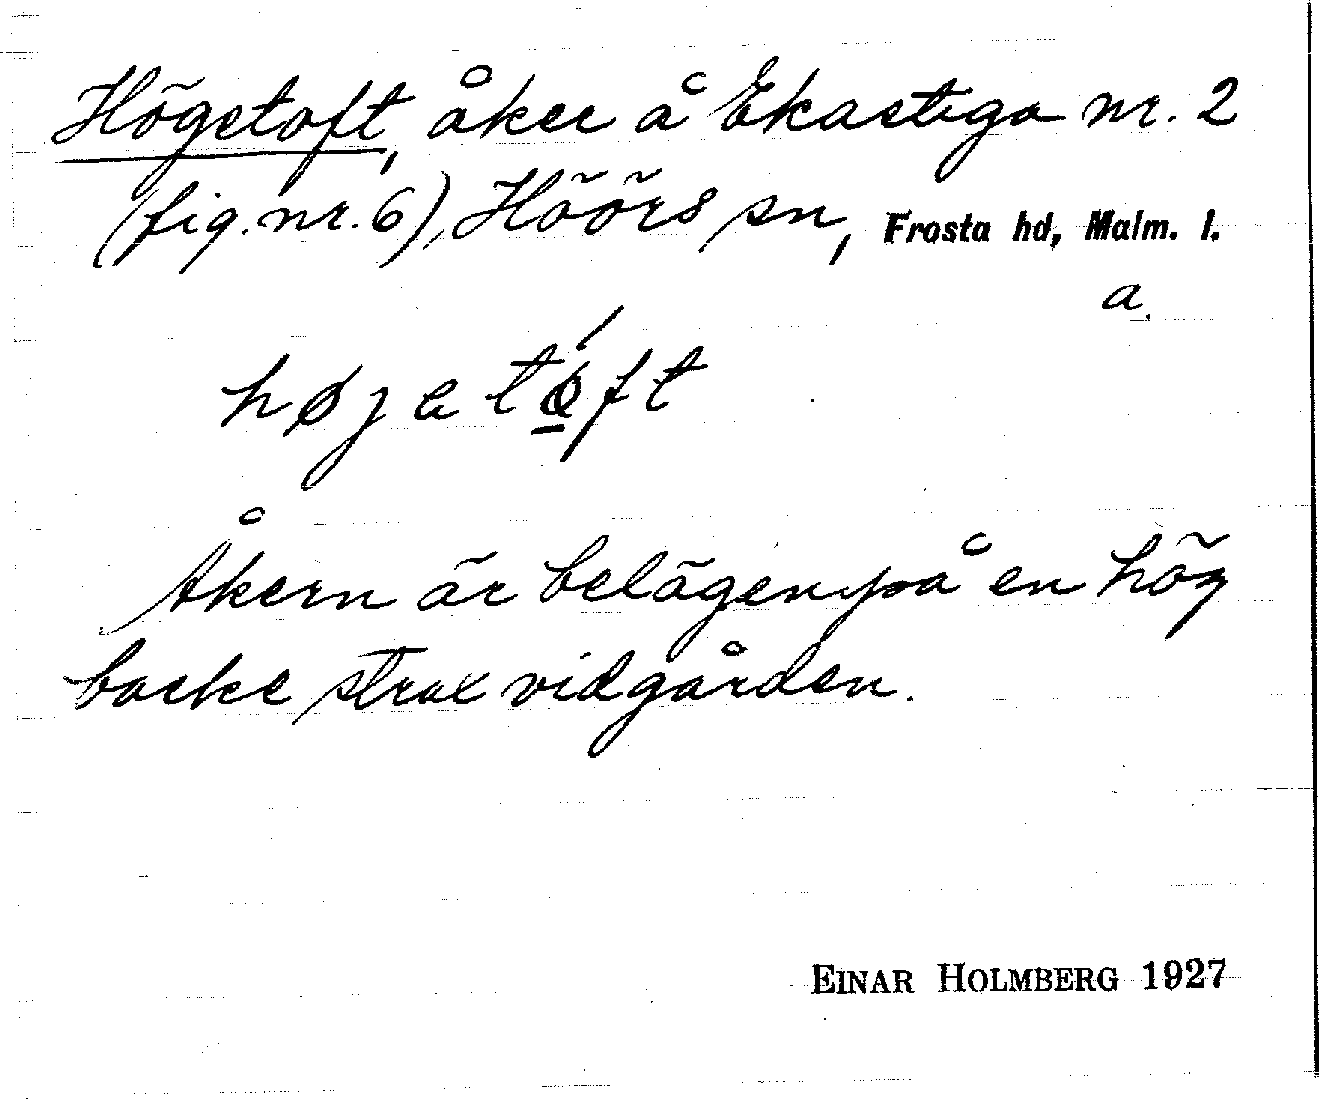 Högetoft, åker å Ekastiga nr. 2
(fig. nr. 6), Höörs sn, Frosta hd, Malm. l.
a.
højatǿft
Åkern är belägen på en hög
backe strax vid gården.
EINAR HOLMBERG 1927